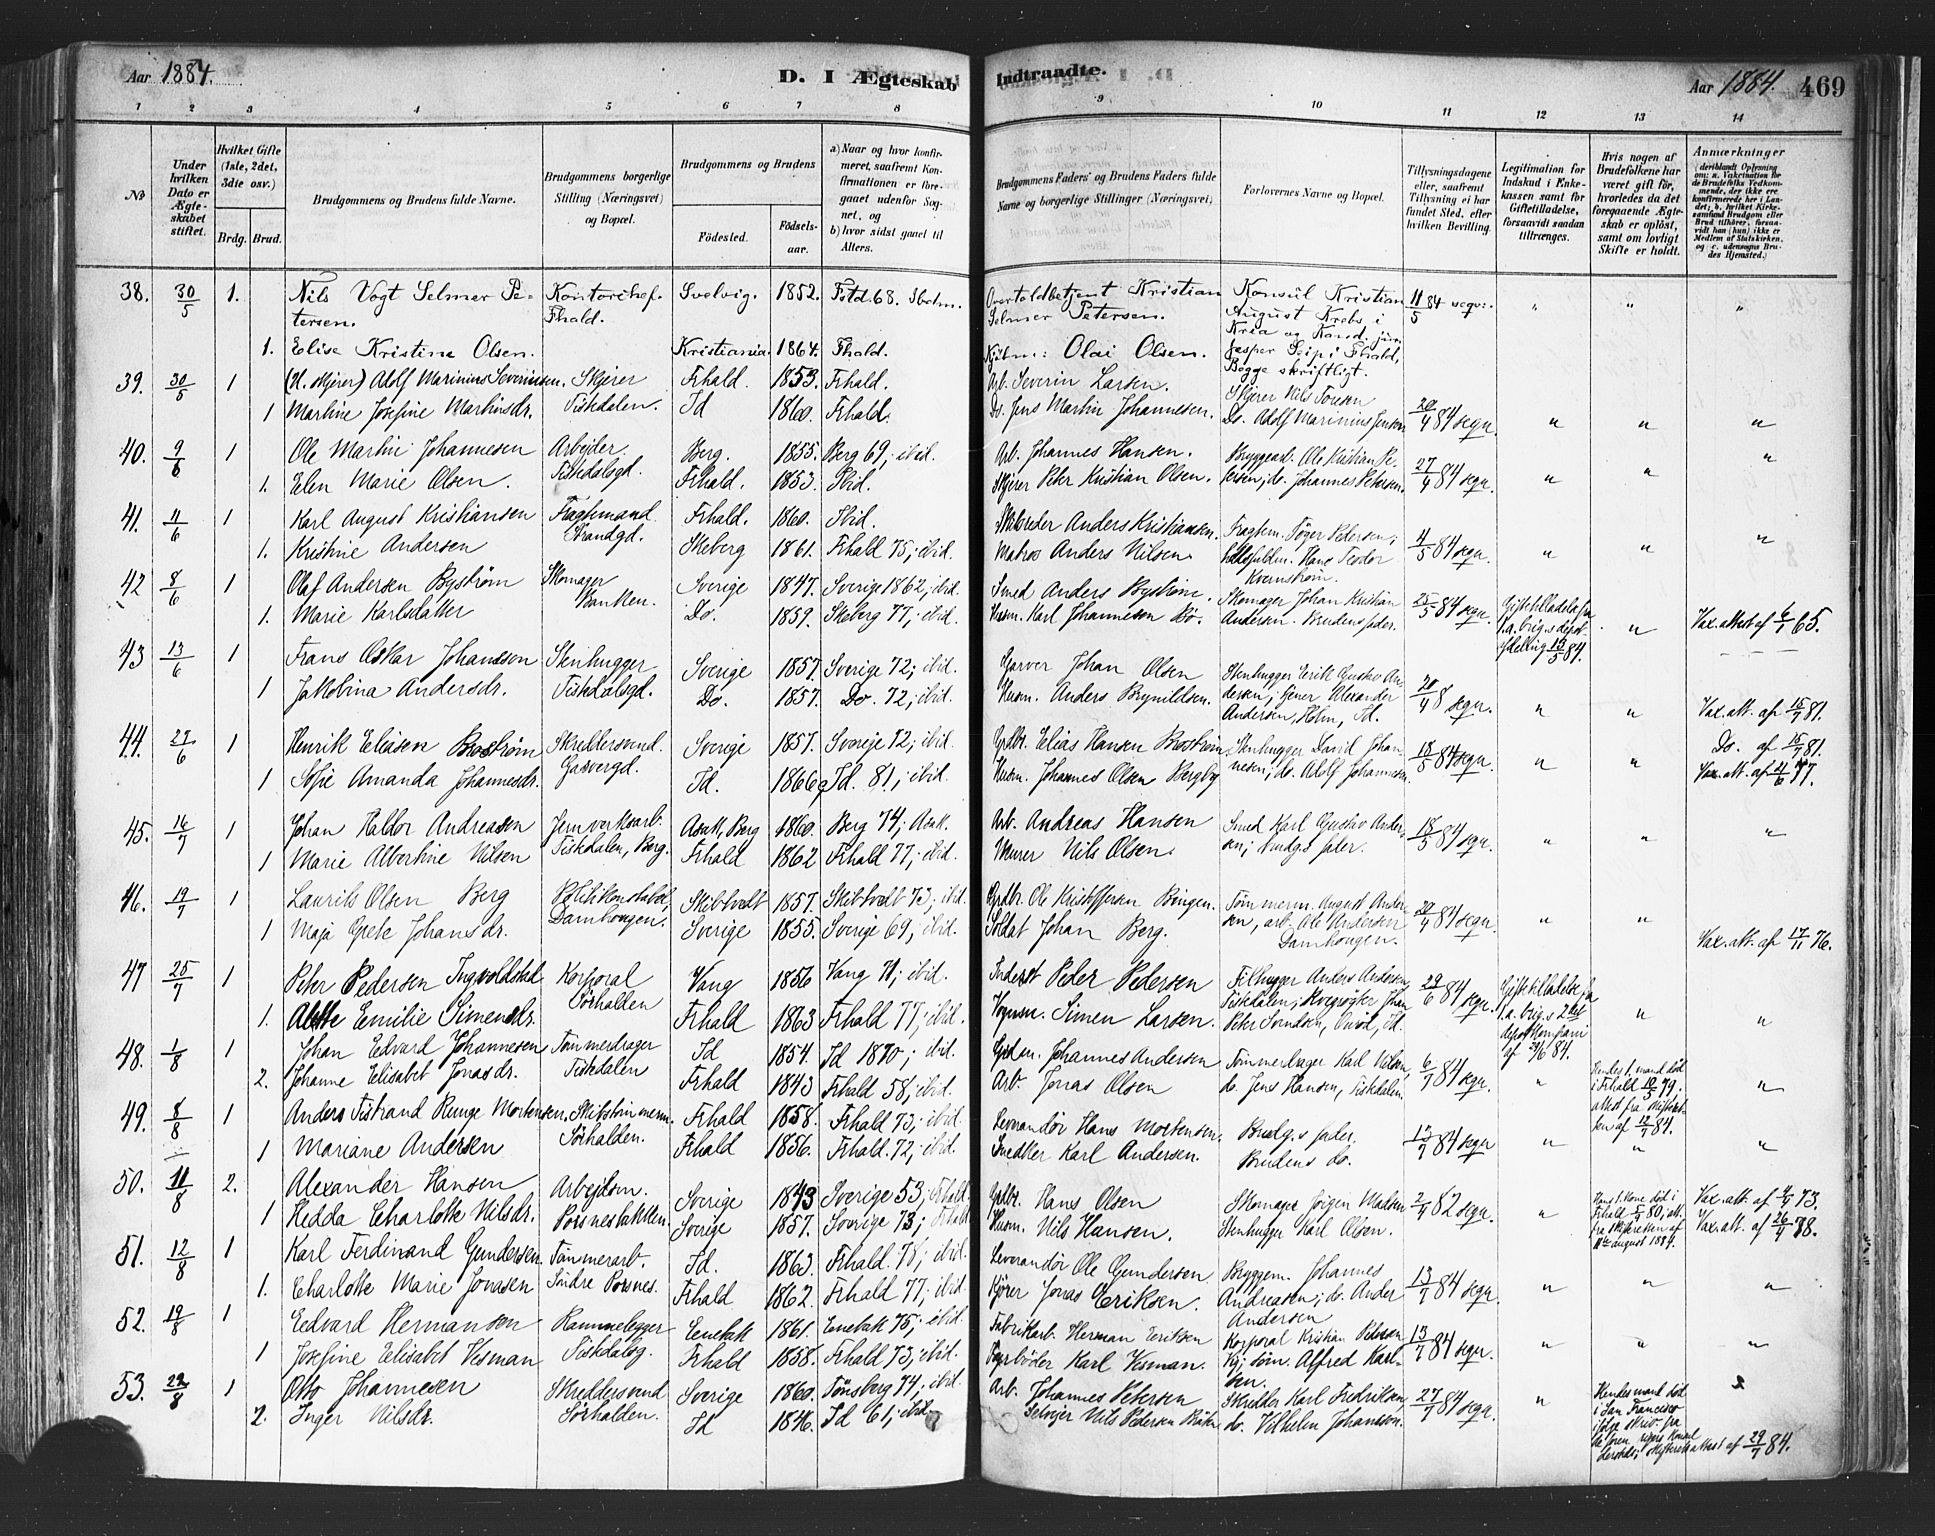 Aar 1884. D. I Ægteskab Indtraadte. Aar 1884. 469
1 2 3 4 5 6 7 8 9 10 11 12 13 14
No
Under hvilken Dato er Ægteskabet stiftet.
Hvilket Gifte (1ste, 2det, 3die osv.)
Brdg. Brud.
Brudgommens og Brudens fulde Navne.
Brudgommens borgerlige Stilling (Næringsvei) og Bopæl.
Brudgommens og Brudens
Fødested. Fødselsaar.
a) Naar og hvor konfirmeret, saafremt Konfirmationen er foregaaet udenfor Sognet, og
b) hvor sidst gaaet til Alters.
Brudgommens Faders og Brudens Faders fulde Navne og borgerlige Stillinger (Næringsvei)
Forlovernes Navne og Bopæl.
Tillysningsdagene eller, saafremt Tillysning ei har fundet Sted, efter hvilken Bevilling.
Legitimation for Indskud i Enkekassen samt for Giftetilladelse, forsaavidt saadan tiltrænges.
Hvis nogen af Brudefolkene har været gift før, hvorledes da det foregaaende Ægteskab er opløst, samt om lovligt Skifte er holdt.
Anmærkninger
38. 30/5 1. Nils Vogt Selmer Petersen. Kontorchef. Fhald. Svelvig. 1852. Fstd. 68. Overtoldbetjent Kristian Selmer Petersen. Konsul Kristian August Krebs i Kria og Kand. jur. Jasper i Fhald, Begge skriftligt. 11/5 84 seqv. " " "
1. Elise Kristine Olsen. Kristiania. 1864. Fhald. Kjøbm: Olai Olsen.
39. 30/5 1 Adolf Marinius Severinsen. Skjærer Fiskdalen. Frhald. 1853. Frhald. Arb. Severin Larsen. Skjærer Nils Tonsen
1 Martine Josefine Martinsdr. Id 1860. Frhald. Do. Jens Martin Johannesen. Do. Adolf Marinius Jensen 20/4 84 seqv. " " "
40. 9/6 1 Ole Martin Johannesen Arbejder. Fiskdalsgd. Berg. 1855. Berg 69, ibid. Arb. Johannes Hansen. Bryggearb. Ole Kristian Petersen; do. Johannes Petersen. 27/4 84 seqv. " " "
1. Elen Marie Olsen. Frhald. 1853. Ibid. Skjærer Peter Kristian Olsen.
41. 11/6 1 Karl August Kristiansen Fragtmand Strandgd. Frhald. 1860. Ibid. Skibsreder Anders Kristiansen. Fragtem. Tøger Pedersen; Hans Teodor Kvernstrøm. 4/5 84 seqv. " " "
1. Kristine Andersen Skeberg 1861. Frhald 75, ibid. Matros Anders Nilsen
42 8/6 1 Olaf Andersen Byström Skomager Banken. Sverige 1847. Sverige 1862, ibid. Smed Anders Byström. Skomager Johan Kristian Andersen. Brudens fader. 25/5 84 seqv. Giftetilladelse fra " Vax. attest af 6/1 65.
1. Marie Karlsdatter Do. 1859. Skeberg 77, ibid. Husm. Karl Johannesen Bö.
43 13/6 1 Frans Oskar Johansson Stenhugger Fiskdalsgd. Sverige 1857. Sverige 72; ibid. Garver Johan Olsen Stenhugger Erik Gustav Andersen; Alexander Andersen, Holm, Id. 20/4 8 seqv. " " Vax. att. af 15/7 81.
1 Jakobina Andersdr. Do. 1857. Do. 72, ibid. Husm. Anders Brynildsen. Do. af 15/7 81.
44. 27/6 1 Henrik Eliasen Boström Skreddersvend. Gasvergd. Sverige 1857. Sverige 72; ibid. Grdbr. Elias Hansen Boström Stenhugger David Johannesen; do. Adolf Johannesen. 18/5 84 seqv. " " Vax. att. af 21/6 77.
1 Sofie Amanda Johannesdr. Id. 1866 Id. 81, ibid. Husm. Johannes Olsen Bergby
45. 16/7 1 Johan Haldor Andreasen Jernverksarb. Fiskdalen, Berg. Asak, Berg 1860. Berg 74; Asak. Arb. Andreas Hansen Smed Karl Gustav Andersen; Brudgs fader. 18/5 84 seqv. " " "
1 Marie Albertine Nilsen Frhald 1862 Frhald 77, ibid. Murer Nils Olsen.
46. 19/7 1 Laurits Olsen Berg Politikonstabel, Damhaugen. Skibtvedt 1857. Skibtvedt 73; ibid. Grdbr. Ole Kristoffersen Bingen. Tømmerm. August Andersen, arb. Ole Andersen Damhougen. 20/4 84 seqv. " "
1 Maja Grete Johansdr. Sverige 1855. Sverige 69, ibid. Soldat Johan Berg. Vax. att. af 17/11 76.
47 25/7 1 Peter Pedersen Ingvoldstad Korporal Sörhalden Vang 1856 Vang 71; ibid. Inderst Peder Pedersen Filhugger Anders Andersen, Fiskdalen; Kvegrøgter Johan Peter Svendsen, Id. 29/6 84 seqv. Giftetilladelse fra depot Kompani af 24/6 84. " "
1. Alette Emilie Simensdr. Frhald 1863 Frhald 77; ibid. Vognm. Simen Larsen.
48. 1/8 1 Johan Edvard Johannesen Tømmerdrager Fiskdalen Id 1854. Id 1870; ibid. Johannes Andersen Tømmerdrager Karl Nilsen, do. Jens Hansen, Fiskdalen. 6/7 84 seqv. " Hendes 1. mand död i Frhald 10/5 79. attest fra Skifteretten af 12/7 84. "
2. Johanne Elisabet Jonasdr. Frhald 1843 Frhald 58, ibid. Arb. Jonas Olsen
49. 8/8 1 Anders Tistrand Runge Mortensen. Skibstømmerm. Sörhalden. Frhald 1858. Frhald 73; ibid. Leverandør Hans Mortensen. Brudg.s fader. Brudens do. 13/7 84 seqv " " "
1 Mariane Andersen Frhald 1856. Frhald. 72, ibid. Snedker Karl Andersen.
50. 11/8 2. Alexander Hansen Arbejdsm. Porsnesbakken. Sverige 1843 Sverige 53; Frhald. Grdbr. Hans Olsen Skomager Jørgen Madsen Stenhugger Karl Olsen. 2/4 82 seqv. " Hans 1. kone död i Frhald 5/4 80; att. fra skifteretten af 11te august 1884. Vax. att. af 4/4 73.
1 Hedda Charlotte Nilsdr. Sverige 1857. Sverige 73; Frhald Husm. Nils Hansen. Vax. att. af 26/4 78.
51. 12/8 1 Karl Ferdinand Gundersen Tømmerarb. Søndre Porsnes. Id. 1863. Frhald. 78, ibid. Leverandør Ole Gundersen Bryggem. Johannes Andreasen; do. Ander Andersen 13/7 84 seqv. " " "
1. Charlotte Marie Jonasen Frhald 1862. Frhald 77, ibid. Kjører Jonas Eriksen.
52. 19/8 1 Edvard Hermansen Rammelegger Fiskdalsg. Enebak 1861. Enebak 75; ibid. Fabrikarb. Herman Eriksen Korporal Kristian Pedersen Alfred Karlsen. 13/7 84 seqv. " " "
1 Josefine Elisabet Vesman Frhald 1858. Frhald 73, ibid. Fyrbøder Karl Vesman.
53. 22/8 1 Otto Johannesen Skreddersvend Sörhalden. Sverige 1860. Tønsberg 74, ibid. Arb. Johannes Petersen Skredder Karl Fredriksen, do. Vilhelm Johanson. 27/7 84 seqv. " Hendes mand död i San Francisco ifølge skriv. fra skifteretsattest af 29/7 84.
2. Inger Nilsdr. Id 1846. Id 61, ibid. Selvejer Nils Pedersen